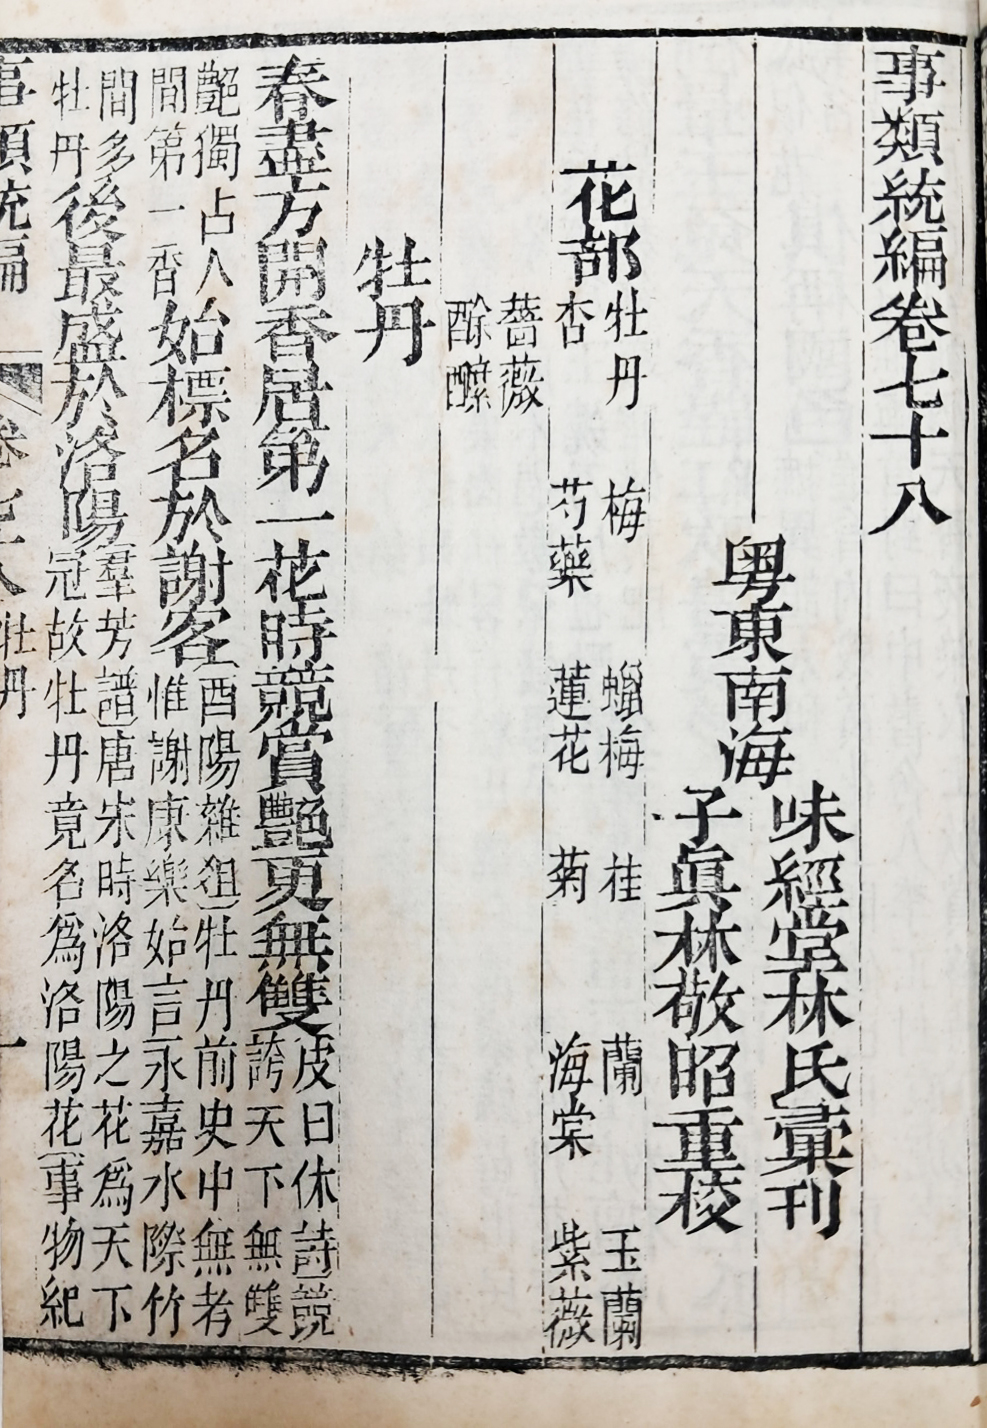 事類統編卷七十八
粤東南海
味經堂林氏彙刊
子眞林敬昭重校
花部
牡丹 梅 蠟梅 桂 蘭 玉蘭
杏 芍藥 蓮花 菊 海棠 紫薇
薔薇
酴醾
牡丹
春盡方開香居第一花時競賞艷更無雙
皮日休詩競
誇天下無雙
艷獨占人
間第一香
始標名於謝客
酉陽雜俎牡丹前史中無考
惟謝康樂始言永嘉水際竹
間多
牡丹
後最盛於洛陽
羣芳譜唐宋時洛陽之花爲天下
冠故牡丹竟名爲洛陽花事物紀
事類統編
卷七十八
牡丹
一